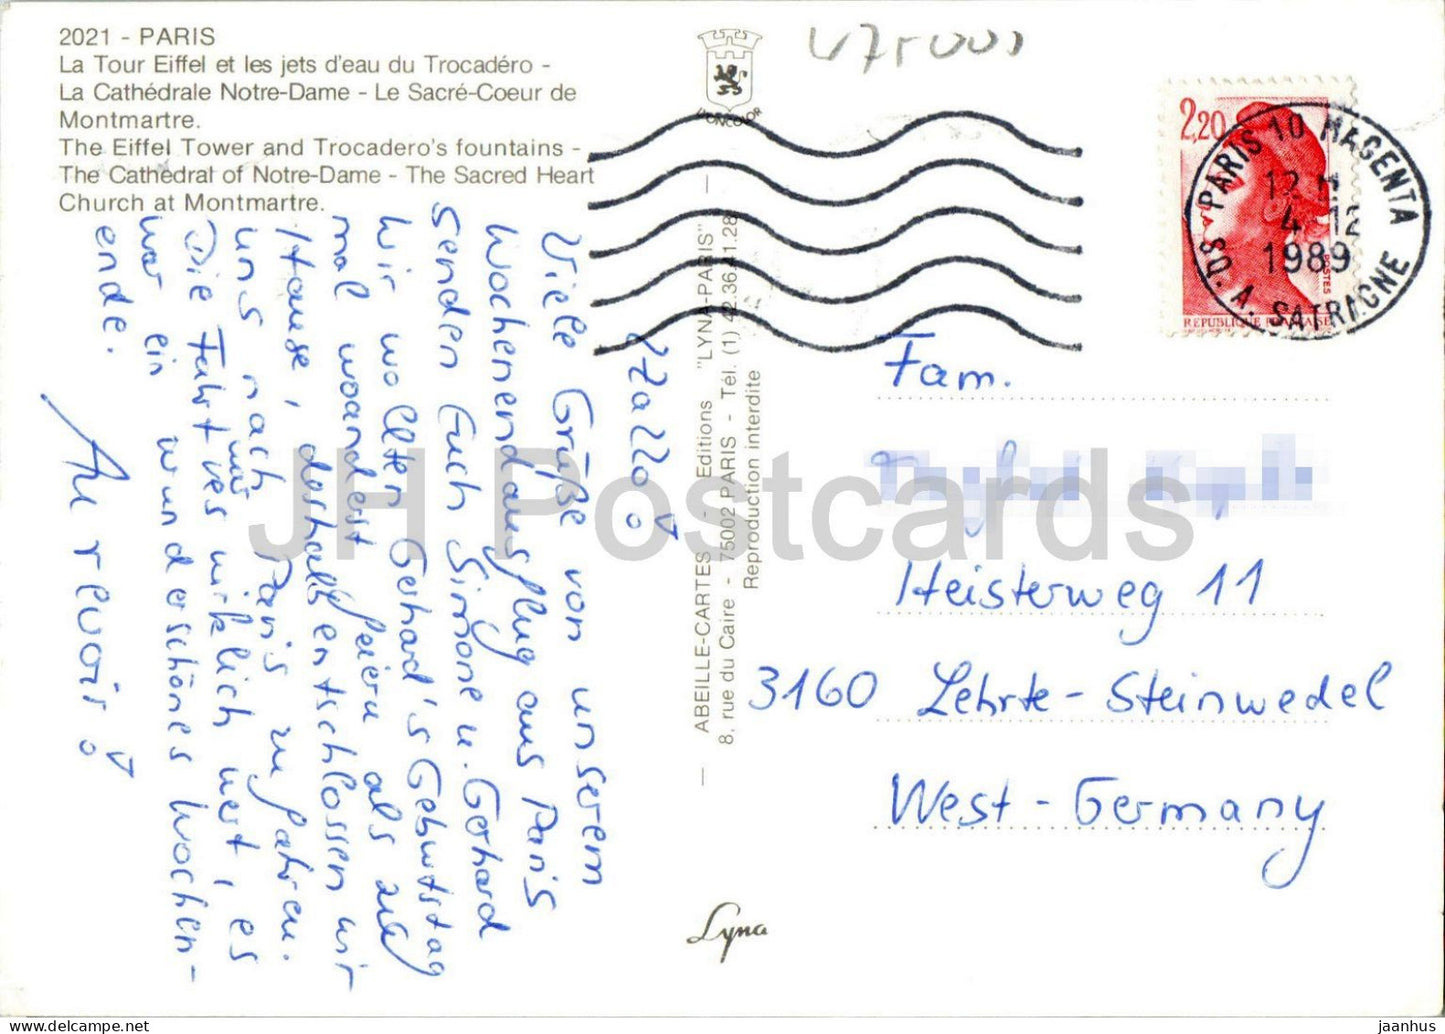 2021 - PARIS
La Tour Eiffel et les jets d'eau du Trocadéro -
La Cathédrale Notre-Dame - Le Sacré-Coeur de
Montmartre.
The Eiffel Tower and Trocadero's fountains -
The Cathedral of Notre-Dame - The Sacred Heart
Church at Montmartre.
LYONCOLOR
2,20
POSTES
REPUBLIQUE FRANÇAISE
PARIS 10 MAGENTA
12 H
4-12
1989
Hallo!
Viele Grüße von unserem
Wochenendausflug aus Paris
senden Euch Simone u. Gerhard
Wir wollten Gerhard's Geburtstag
mal woanders feiern als zu
Hause, deshalb entschlossen wir
uns nach Paris zu fahren.
Die Fahrt war es wirklich wert, es
war ein wunderschönes Wochen-
ende.
Au revoir!
ABEILLE-CARTES - Editions "LYNA-PARIS"
8, rue du Caire - 75002 PARIS - Tél. (1) 42.36.41.28
Reproduction interdite
Fam.
Heisterweg 11
3160 Lehrte-Steinwedel
West-Germany
Lyna
JH Postcards
jaanhus — www.delcampe.net